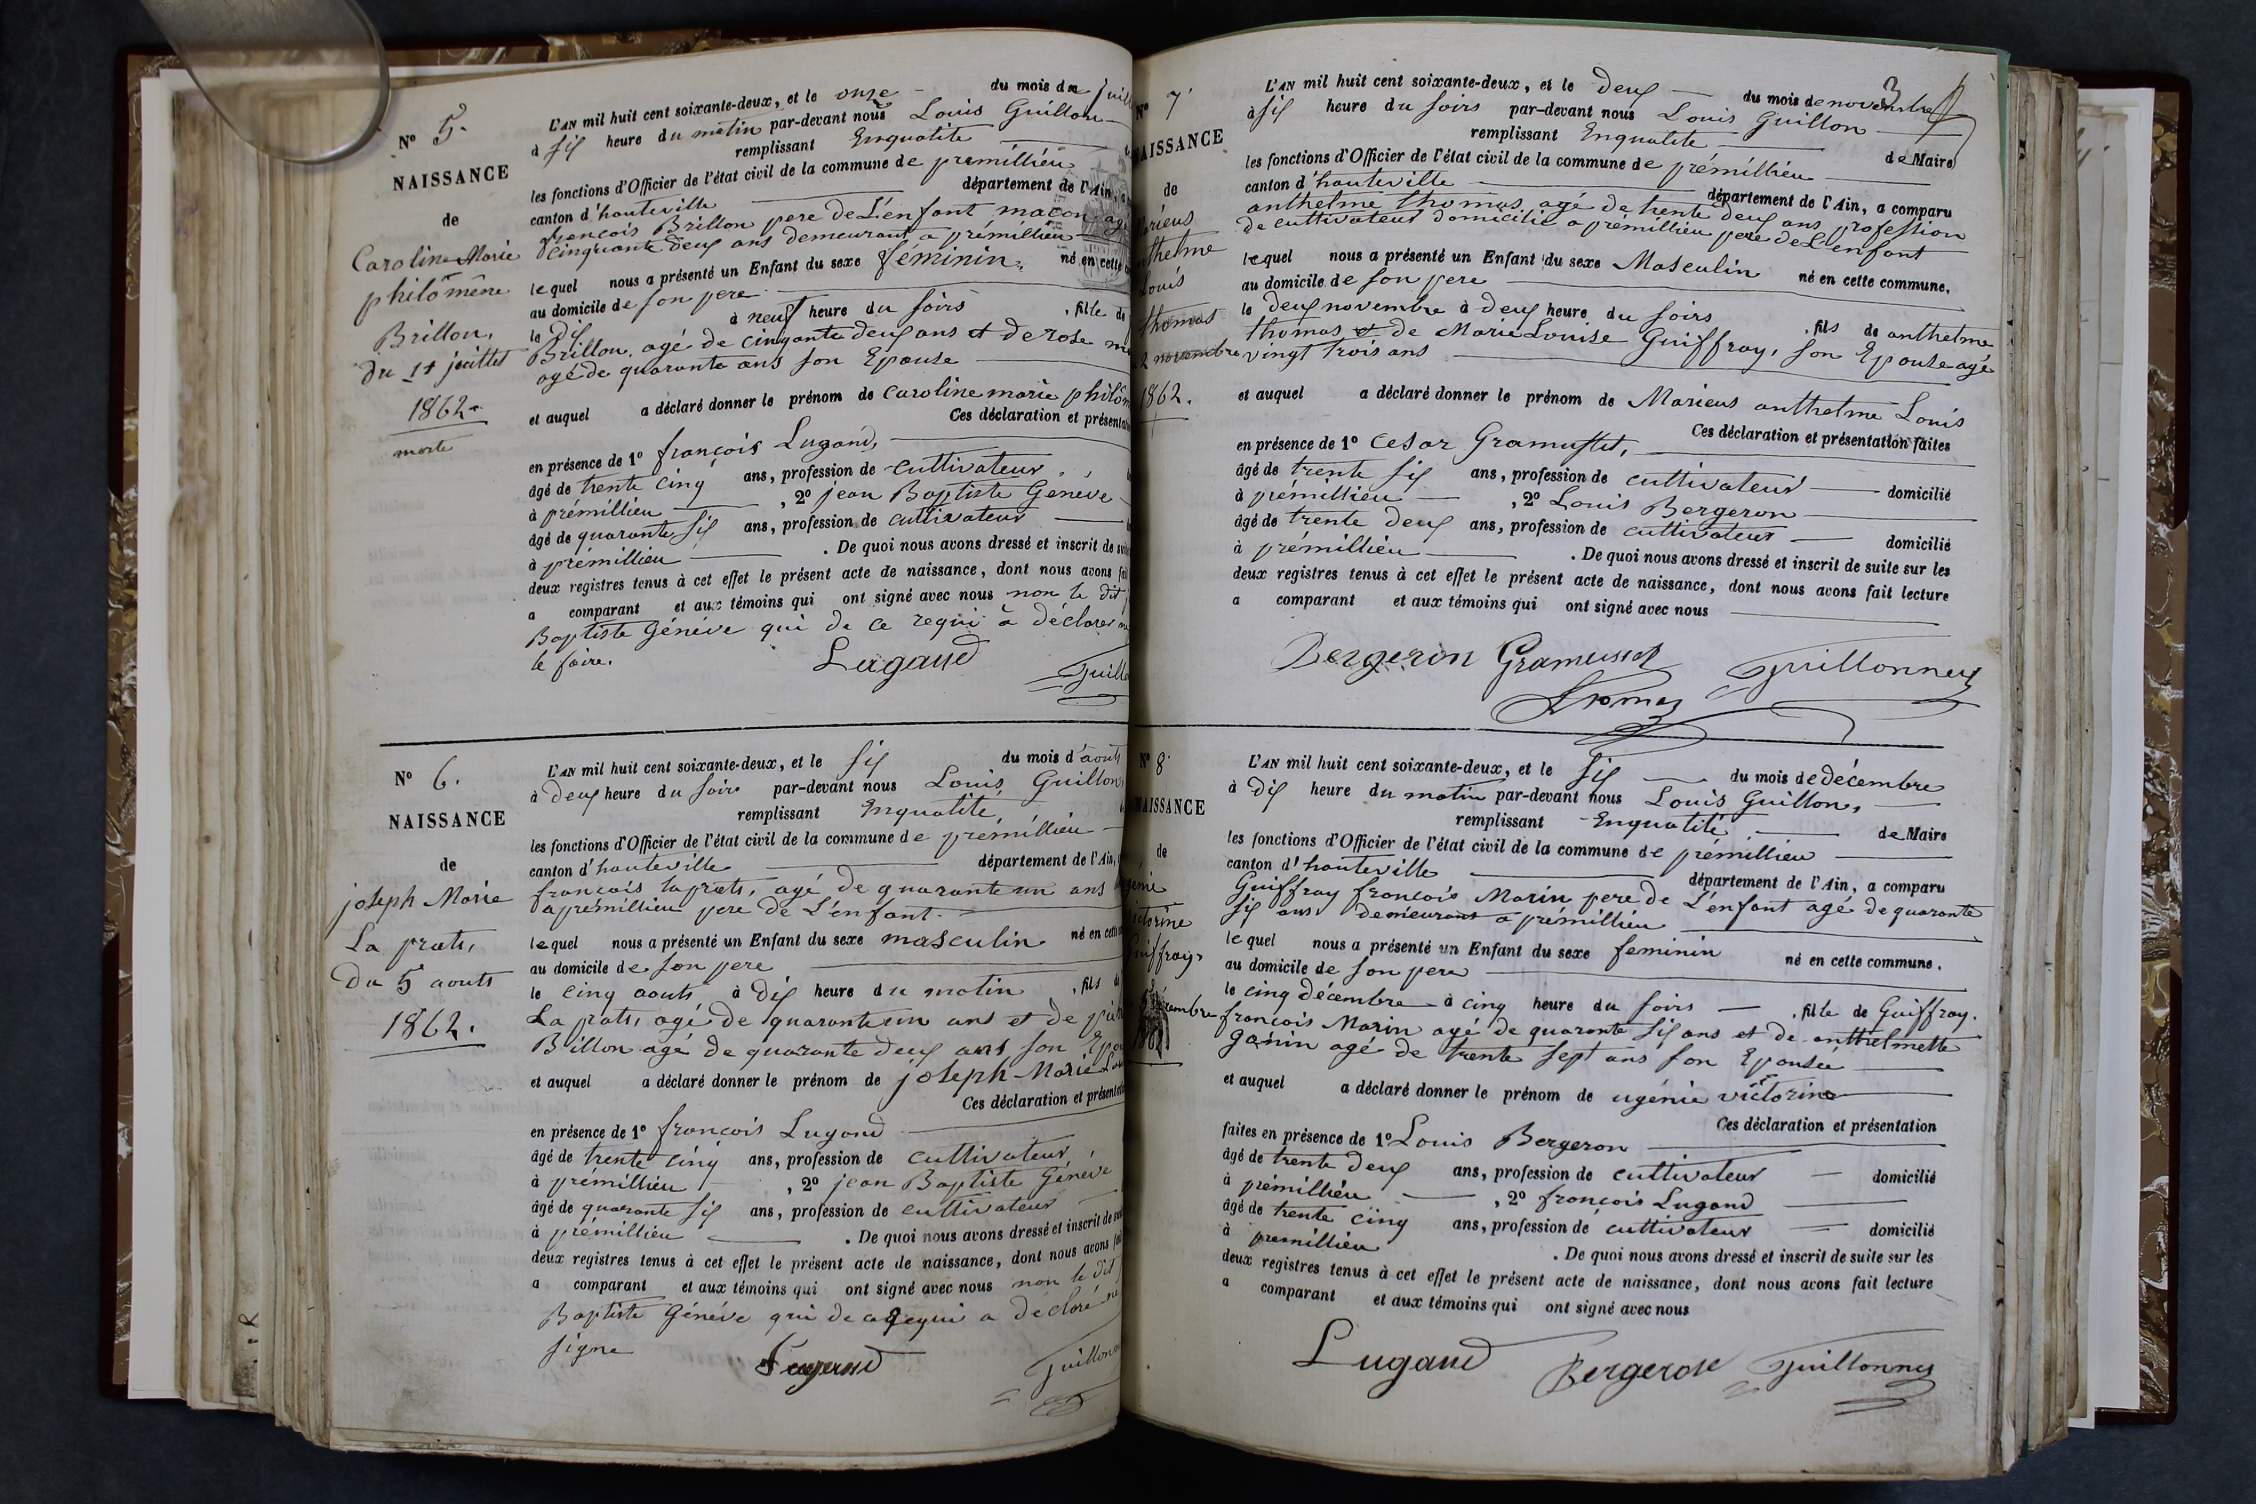 N° 5.
NAISSANCE
de
Caroline Marie
philomène
Brillon.
du 11 juillet
1862.
morte
L'AN mil huit cent soixante-deux, et le onze du mois de juill
à six heure du matin par-devant nous Louis Guillon
remplissant Enqualité
les fonctions d'Officier de l'état civil de la commune de premillieu
canton d'hauteville département de l'Ain,
francois Brillon pere de L'enfant macon agé
cinquante deux ans demeurant a prémillieu
lequel nous a présenté un Enfant du sexe féminin, né en cette
au domicile de son pere
le dix à neuf heure du soirs , fille de
Brillon, agé de cinquante deux ans et de rose
agé de quarante ans son Epouse
et auquel a déclaré donner le prénom de Caroline marie philom
Ces déclaration et présentation
en présence de 1° françois Lugand,
âgé de trente cinq ans, profession de cultivateur
à prémillieu , 2° jean Baptiste Genève
âgé de quarante six ans, profession de cultivateur
à prémillieu . De quoi nous avons dressé et inscrit de suite
deux registres tenus à cet effet le présent acte de naissance, dont nous avons fait
a comparant et aux témoins qui ont signé avec nous non le dit
Baptiste Génève qui de ce requi à déclarer
le faire.
Lugand Guillo
N° 6.
NAISSANCE
de
joseph Marie
La prats,
Du 5 aouts
1862.
L'AN mil huit cent soixante-deux, et le six du mois d'aouts
à deux heure du soirs par-devant nous Louis Guillon,
remplissant Enqualité,
les fonctions d'Officier de l'état civil de la commune de prémillieu
canton d'hauteville département de l'Ain,
francois laprats, agé de quarante un ans
aprémillieu peré de L'enfant.
lequel nous a présenté un Enfant du sexe masculin né en cette
au domicile de son pere
le cinq aouts à dix heure du matin , fils d
La prats, agé de quarante un ans et de
Billon agé de quarante deux ans son Epou
et auquel a déclaré donner le prénom de joseph Marie
Ces déclaration et présentation
en présence de 1° francois Lugand
âgé de trente cinq ans, profession de cultivateur
à prémillieu , 2° jean Baptiste Génève
âgé de quarante six ans, profession de cultivateur
à prémillieu . De quoi nous avons dressé et inscrit de suite
deux registres tenus à cet effet le présent acte de naissance, dont nous avons fait
a comparant et aux témoins qui ont signé avec nous non le dit
Baptiste Génève qui de ce requi a déclaré ne
signe
Lugand Guillon
3
N° 7
NAISSANCE
de
arieus
nthelme
Louis
thomas
2 novembre
1862.
L'AN mil huit cent soixante-deux, et le deux du mois de novembre
à six heure du soirs par-devant nous Louis Guillon
remplissant Enqualité de Maire
les fonctions d'Officier de l'état civil de la commune de prémillieu
canton d'hauteville département de l'Ain, a comparu
anthelme thomas agé de trente deux ans profession
de cultivateur domicilié a prémillieu pere de L'enfant
lequel nous a présenté un Enfant du sexe Masculin né en cette commune,
au domicile de son pere
le deux novembre à deux heure du soirs , fils de anthelme
thomas et de Marie Louise Guiffray, son Epouse agé
vingt trois ans
et auquel a déclaré donner le prénom de Marieus anthelme Louis
Ces déclaration et présentation faites
en présence de 1° Cesar Gramusset,
âgé de trente six ans, profession de cultivateur domicilié
à prémillieu , 2° Louis Bergeron
âgé de trente deux ans, profession de cultivateur domicilié
à prémillieu . De quoi nous avons dressé et inscrit de suite sur les
deux registres tenus à cet effet le présent acte de naissance, dont nous avons fait lecture
a comparant et aux témoins qui ont signé avec nous
Bergeron Gramusset Guillonney
Thomas
N° 8
NAISSANCE
de
genie
ictorine
uiffray,
cembre
1862
L'AN mil huit cent soixante-deux, et le six du mois de décembre
à dix heure du matin par-devant nous Louis Guillon,
remplissant Enqualité de Maire
les fonctions d'Officier de l'état civil de la commune de prémillieu
canton d'hauteville département de l'Ain, a comparu
Guiffray francois Marin pere de L'enfant agé de quarante
six ans demeurant a prémillieu
lequel nous a présenté un Enfant du sexe feminin né en cette commune.
au domicile de son pere
le cinq décembre à cinq heure du soirs , fille de Guiffray.
francois Marin agé de quarante six ans et de anthelmette
ganin agé de trente sept ans son Epousée
et auquel a déclaré donner le prénom de ugénie victorine
Ces déclaration et présentation
faites en présence de 1° Louis Bergeron
âgé de trente deux ans, profession de cultivateur domicilié
à prémillieu , 2° francois Lugand
âgé de trente cinq ans, profession de cultivateur domicilié
à premillieu . De quoi nous avons dressé et inscrit de suite sur les
deux registres tenus à cet effet le présent acte de naissance, dont nous avons fait lecture
a comparant et aux témoins qui ont signé avec nous
Lugand Bergeron Guillonney